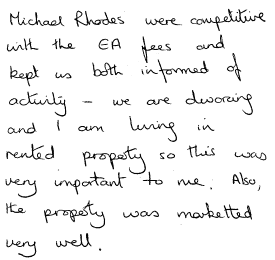 Michael Rhodes were competitive
with the EA fees and
kept us both informed of
activity - we are divorcing
and I am living in
rented property so this was
very important to me. Also,
the property was marketted
very well.